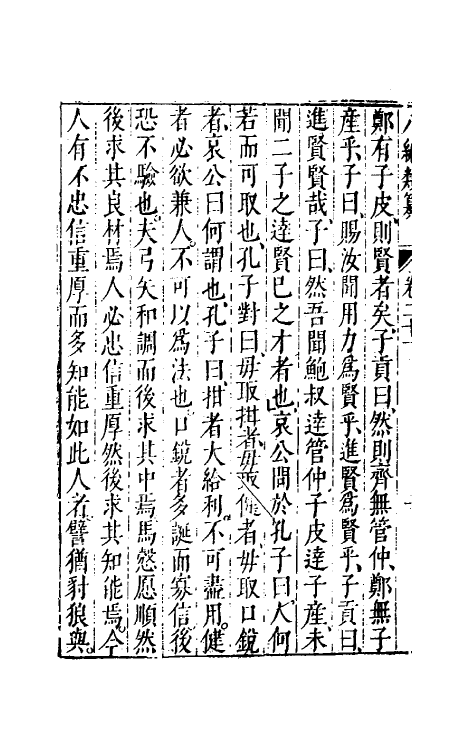 八編類纂 卷二十一
鄭有子皮、則賢者矣、子貢曰、然則齊無管仲、鄭無子
產乎、子曰、賜汝聞用力爲賢乎、進賢爲賢乎、子貢曰、
進賢賢哉、子曰、然吾聞鮑叔達管仲子皮達子產、未
聞二子之達賢已之才者也、哀公問於孔子曰、人何
若而可取也、孔子對曰、毋取拑者、毋取健者毋取口銳
者、哀公曰、何謂也、孔子曰、拑者大給利、不可盡用、健
者必欲兼人、不可以爲法也、口銳者多誕而寡信、後
恐不驗也、夫弓矢和調而後求其中焉、馬愨愿順然
後求其良材焉、人必忠信重厚然後求其知能焉、今
人有不忠信重厚而多知能如此人者、譬猶豺狼與。